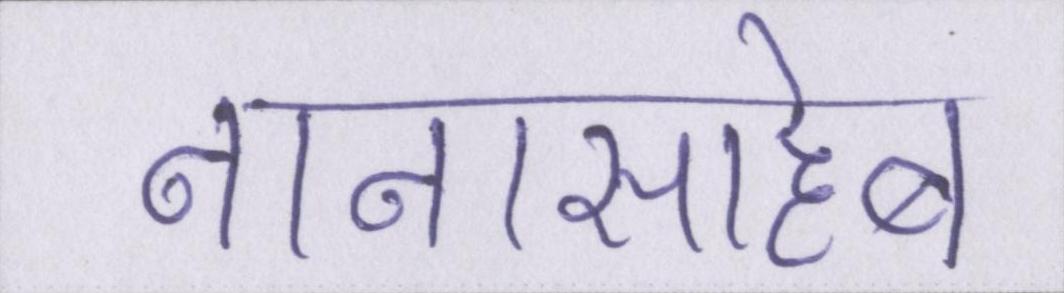 नानासाहेब